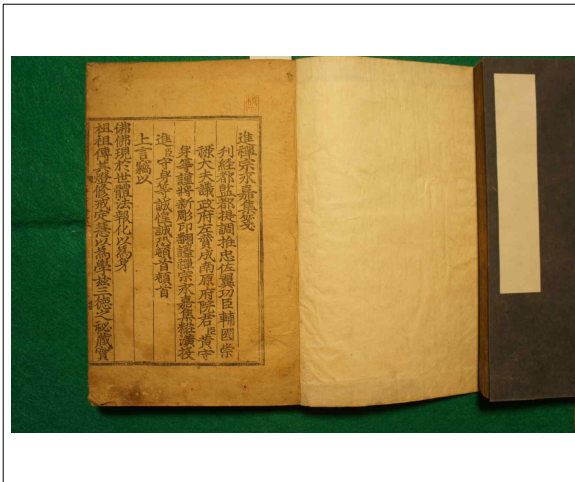 進禪宗永嘉集箋
刋經都監都提調推忠佐翼功臣輔國崇
祿大夫議政府左贊成南原府院君臣黃守
身等謹將新彫印翻譯禪宗永嘉集粧潢投
進臣守身等誠惶誠恐頓首頓首
上言竊以
佛佛現於世體法報化以爲身
祖祖傳其燈修戒定慧以爲學玆三德之秘藏實